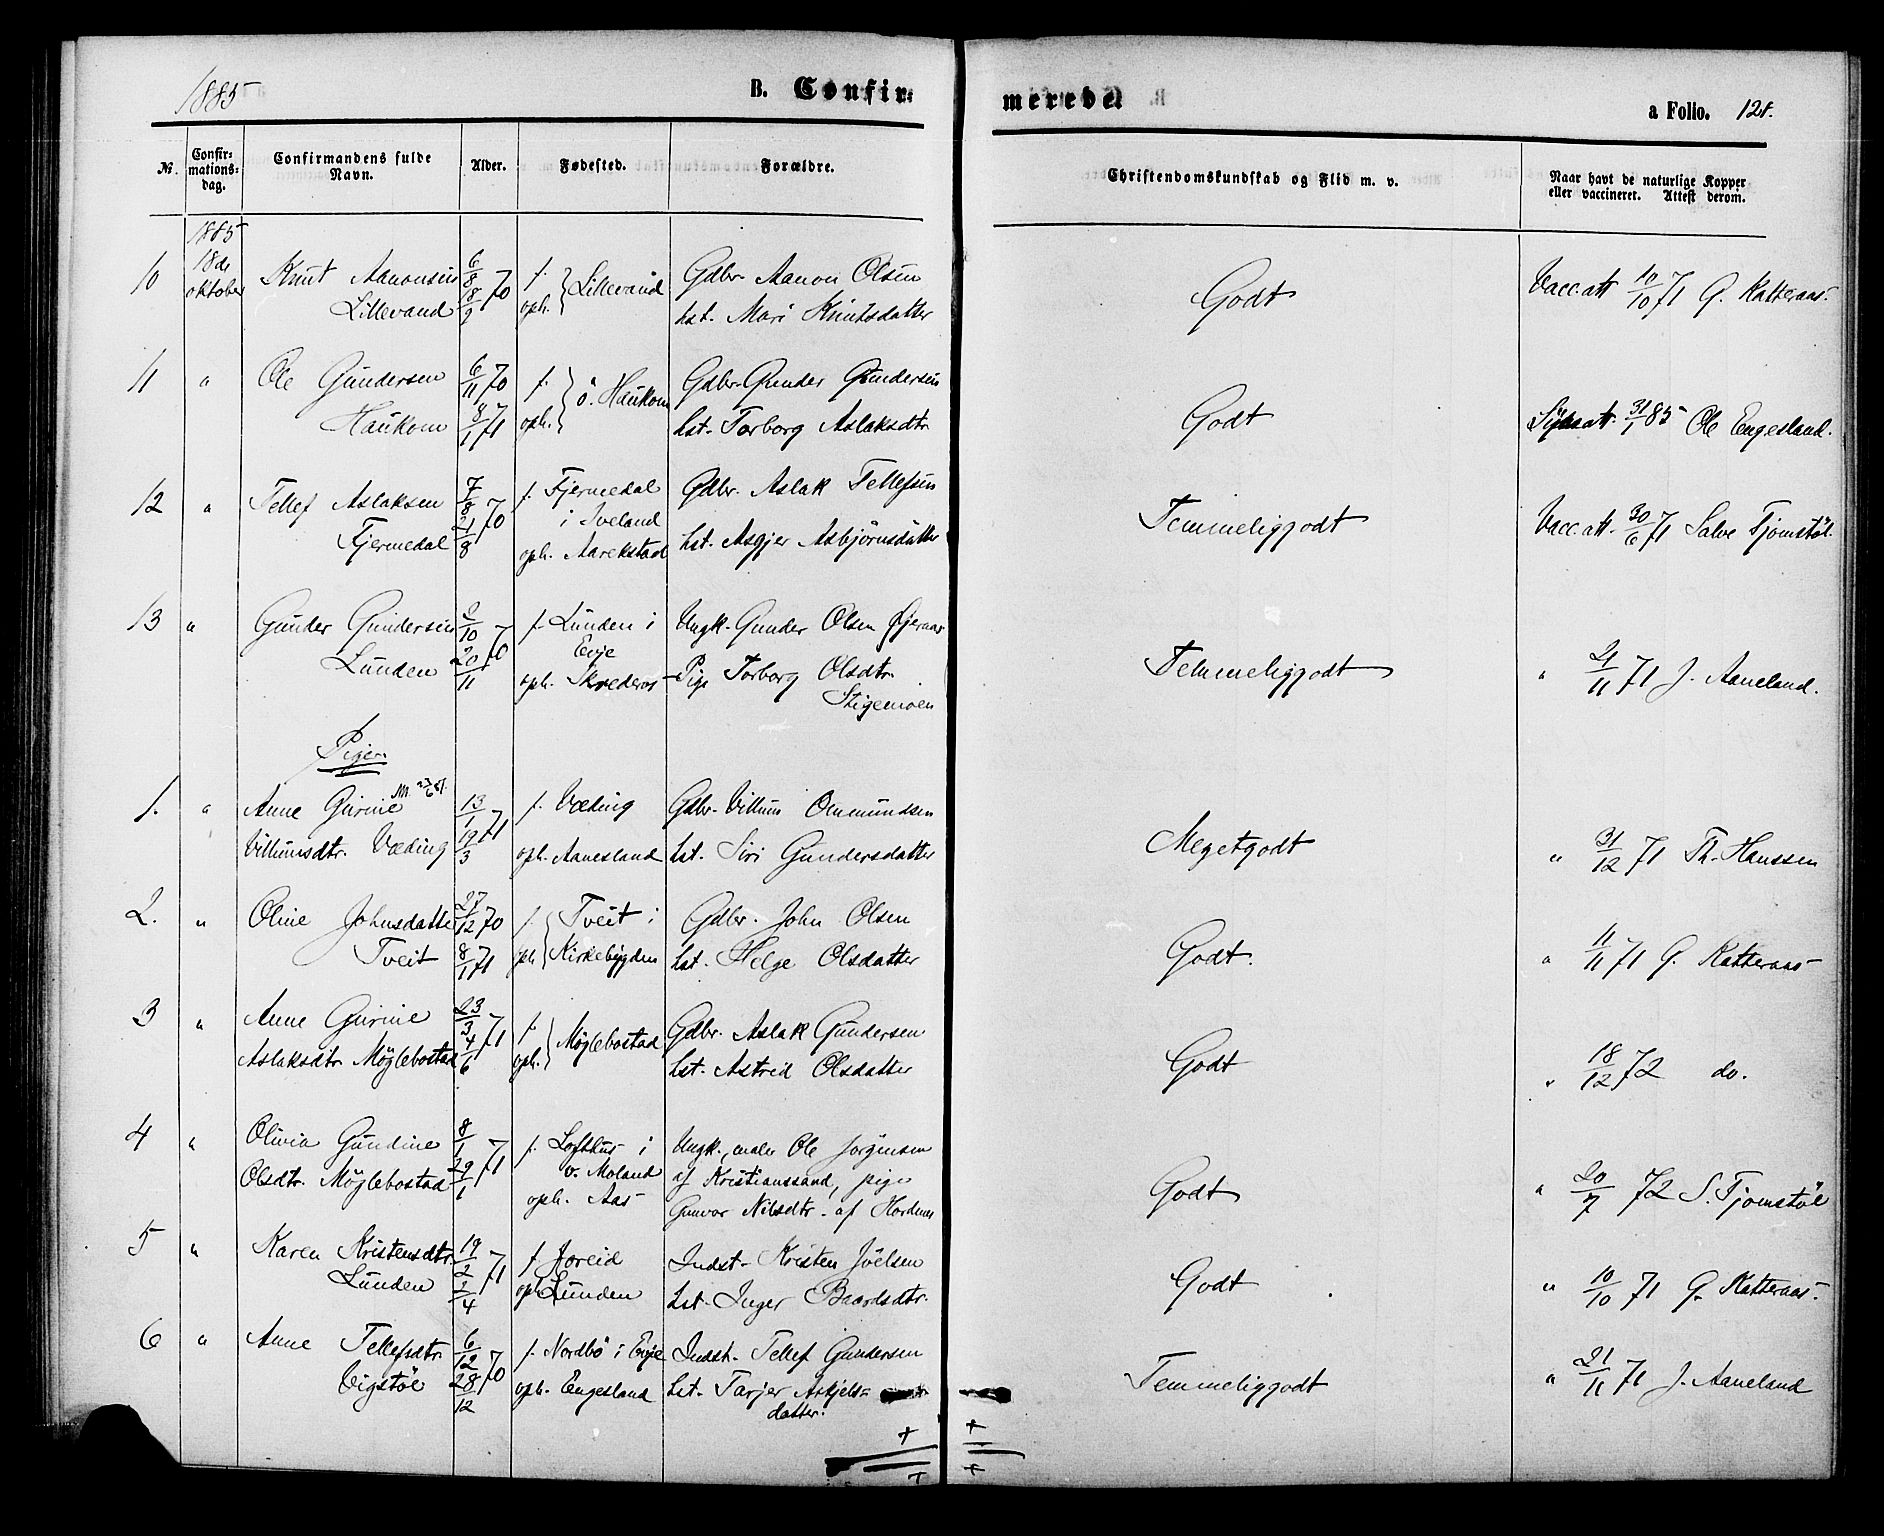 1885
B. Confir- merede.
a Folio. 121.
№. Confir-mations-dag. Confirmandens fulde Navn. Alder. Fødested. Forældre. Christendomskundskab og Flid m. v. Naar havt de naturlige Kopper eller vaccineret. Attest derom.
1885
10 18de oktober Knut Aanonsen 6/8 70 f. Lillevand Gdbr. Aanon Olsen Godt Vacc.att 10/10 71 G. Katteraas
Lillevand 18/9 oph. Hst. Mari Knutsdatter
11 " Ole Gundersen 6/11 70 f. ö. Haukom Gdbr. Gunder Gundersen Godt Synsatt. 31/1 85 Ole Engesland.
Haukom 8/1 71 oph. Hst. Torborg Aslaksdtr
12 " Tellef Aslaksen 7/8 70 f. Fjermedal Gdbr. Aslak Tellefsen Temmeliggodt Vacc.att. 30/6 71 Salve Fjomstöl.
i Iveland
Fjermedal 21/8 oph. Aarekstad Hst. Asgjer Asbjörnsdatter
13 " Gunder Gundersen 2/10 70 f. Lunden i Ungk. Gunder Olsen Temmeliggodt " 21/11 71 J. Aaneland.
Evje
Lunden 20/11 oph. Skrederos Pige Torborg Olsdtr.
Stigemoen
Piger.
1. " Anne Gurine 13/1 71 f. Væding Gdbr. Villum Ommundsen Megetgodt " 31/12 71 Th. Hanssen
Villumsdtr. Væding 19/3 oph. Aanesland Hst. Siri Gundersdatter
2. " Oline Johnsdatter 27/12 70 f. Tveit i Gdbr. John Olsen Godt. " 11/11 71 G. Katteraas
Tveit 8/1 71 oph. Kirkebygden Hst. Helge Olsdatter
3 " Anne Gurine 23/3 71 f. Möglebostad Gdbr. Aslak Gundersen Godt " 18/12 72 do.
Aslaksdtr Möglebostad 4/6 oph. Hst. Astrid Olsdatter
4 " Olivia Gundine 8/1 71 f. Lofthus i Ungk., maler Ole Jorgensen Godt " 20/7 72 S. Fjomstöl
Olsdtr. Möglebostad 29/1 v. Moland af Kristianssand, pige
oph. Aas Gunvor Nilsdtr. af Hordnes
5 " Karen Kristensdtr. 19/2 71 f. Joreid Indst. Kristen Joelsen Godt " 10/10 71 G. Katteraas
Lunden 2/4 oph. Lunden Hst. Inger Baardsdtr.
6 " Anne Tellefsdtr. 6/12 70 f. Nordbö i Evje Indst. Tellef Gundersen Temmeliggodt " 21/11 71 J. Aaneland
Vigstöl 28/12 oph. Engesland Hst. Tarjer Askjels-
datter.